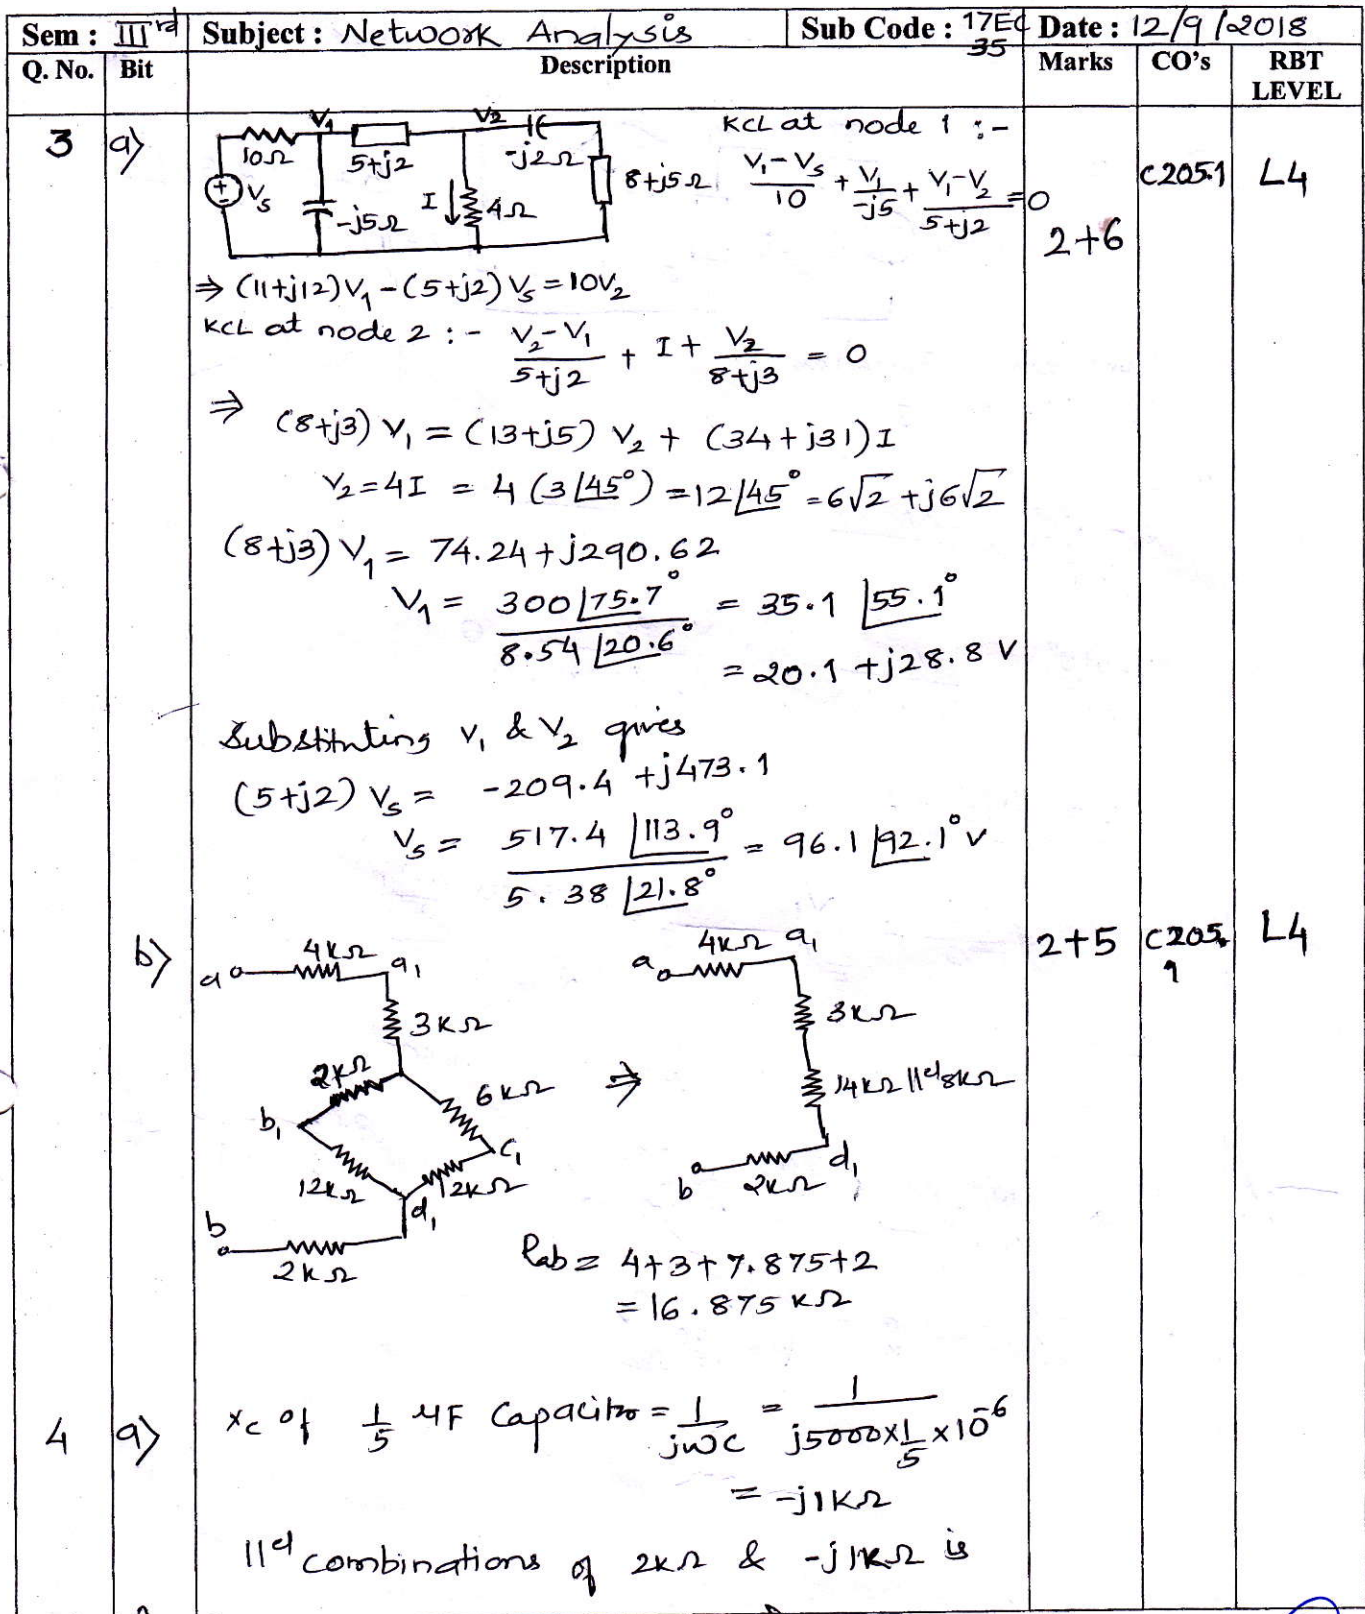 Sem : IIIrd Subject : Network Analysis Sub Code : 17EC35 Date : 12/9/2018
Q. No. Bit Description Marks CO's RBT LEVEL
3 a) V1 V2 KCL at node 1 :-
10Ω 5+j2 -j2Ω 8+j5Ω
Vs -j5Ω I 4Ω
(V1-Vs)/10 + V1/-j5 + (V1-V2)/(5+j2) = 0
2+6 C205.1 L4
⇒ (11+j12)V1-(5+j2)Vs=10V2
KCL at node 2 :- (V2-V1)/(5+j2) + I + V2/(8+j3) = 0
⇒ (8+j3) V1 = (13+j5) V2 + (34+j31)I
V2=4I = 4 (3∠45°) =12∠45° =6√2 +j6√2
(8+j3) V1 = 74.24+j290.62
V1 = 300∠75.7° / 8.54∠20.6° = 35.1 ∠55.1°
= 20.1 +j28.8 V
Substituting V1 & V2 gives
(5+j2) Vs = -209.4 +j473.1
Vs = 517.4 ∠113.9° / 5.38 ∠21.8° = 96.1∠92.1° V
b) 2+5 C205.1 L4
a 4kΩ a1 a 4kΩ a1
3kΩ 3kΩ
2kΩ 6kΩ ⇒ 14kΩ 11el8kΩ
b1 c1
12kΩ 12kΩ d1 b 2kΩ d1
b 2kΩ
Rab = 4+3+7.875+2
= 16.875 kΩ
4 a) xc of 1/5 μF Capacitor = 1/jωC = 1/(j5000×1/5×10-6)
= -j1kΩ
11el combinations of 2kΩ & -j1kΩ is